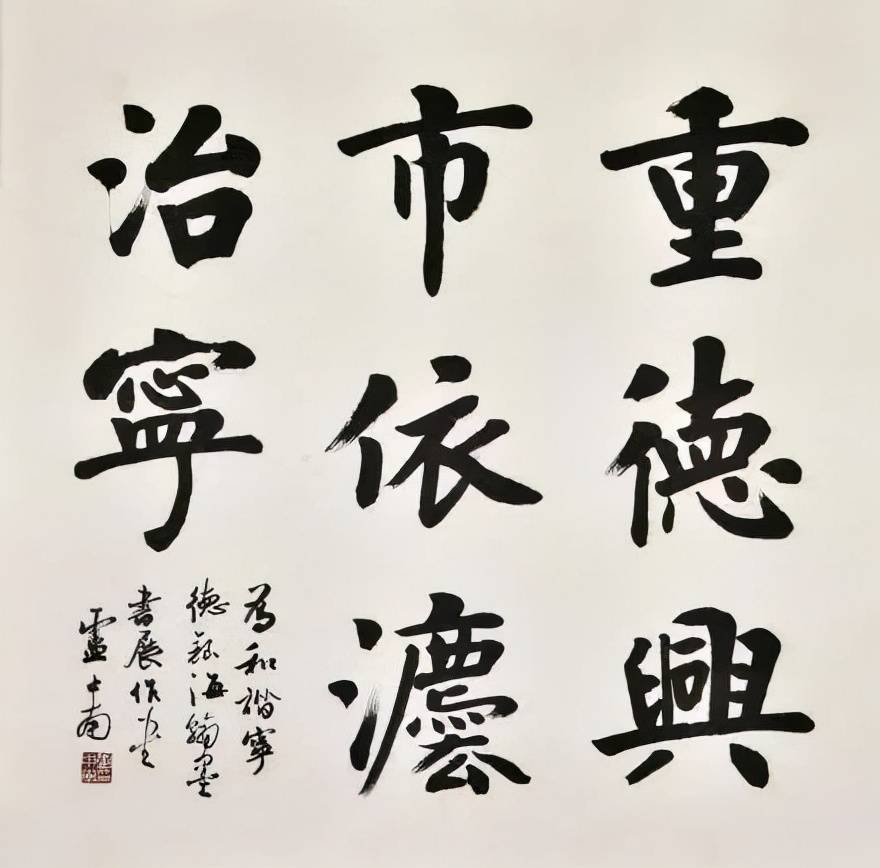 重德興
市依灋
治寧
為和諧寧
德海翰墨
書展作
盧中南